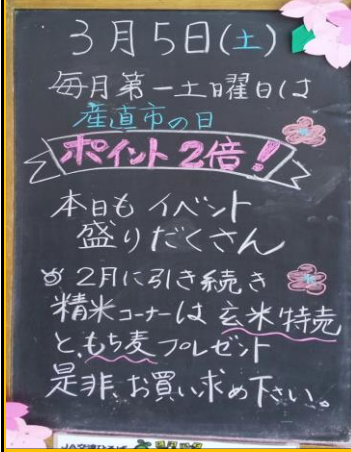 3月5日(土)
毎月第一土曜日は
産直市の日
ポイント2倍!
本日も イベント
盛りだくさん
2月に引き続き
精米コーナーは 玄米特売
と、もち麦プレゼント
是非、お買い求め下さい。